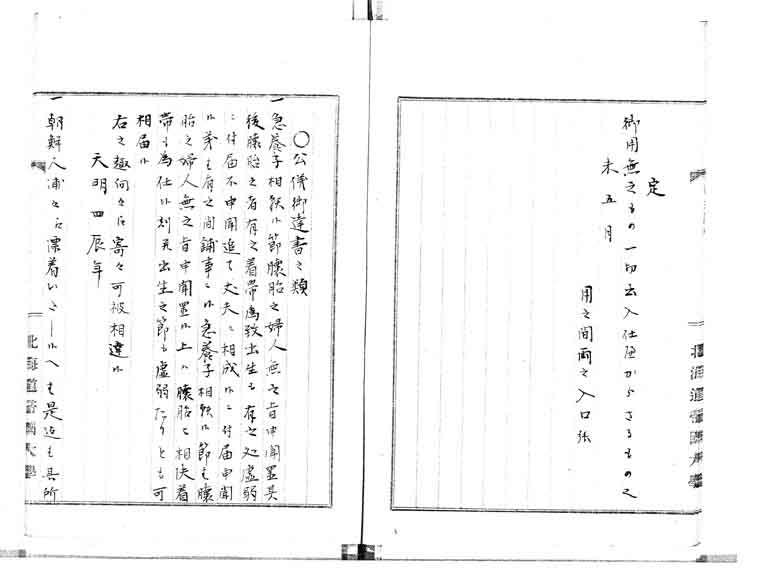 定
御用無之もの一切出入仕間からさるもの之
未五月
用之間両之入口張
北海道帝國大學
〇公儀御達書之類
一急養子相願候節懐胎之婦人無之旨申聞置其
後懐胎之者有之着帯為致出生も有之処虚弱
ニ付届不申聞追て丈夫ニ相成候ニ付届申聞
候茅も有之間舗事ニ候急養子相願候節も懐
胎之婦人無之旨申聞置候上ハ懐胎ニ相决着
帯も為仕候刻又出生之節も虚弱たりとも可
相届候
右之趣何々江寄々可被相達候
天明四辰年
一朝鮮人浦々江漂着いさし候へも是迄も其所
北海道帝國大學